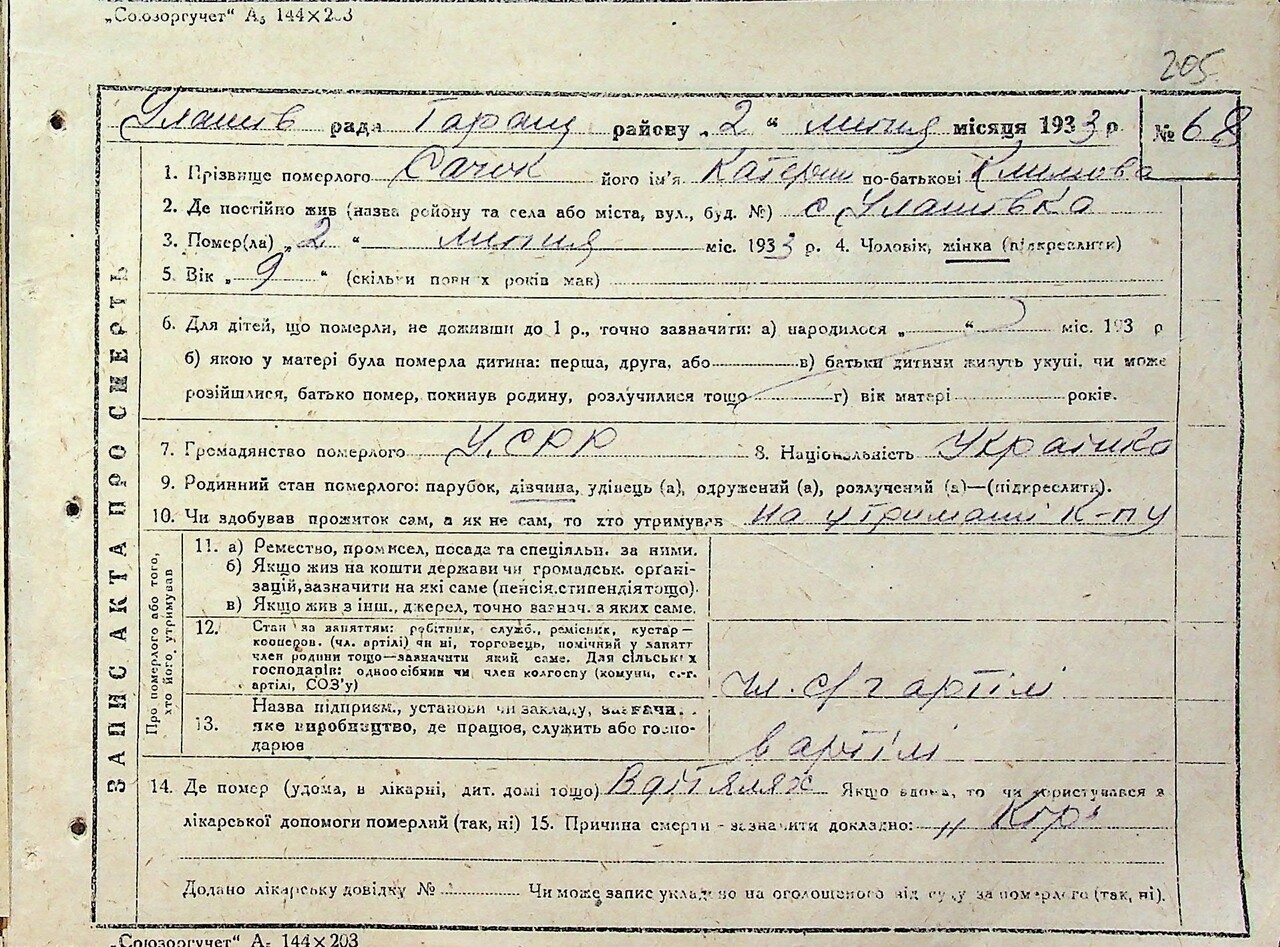 „Союзоргучет“ А5 144×203
205
Улашів рада Таращ району „2“ липня місяця 1933 р. № 68
ЗАПИС АКТА ПРО СМЕРТЬ
1. Прізвище померлого Сачок його ім'я Катерин по-батькові Климова
2. Де постійно жив (назва району та села або міста, вул., буд. №) с Улашівка
3. Помер(ла) „2“ липня міс. 1933 р. 4. Чоловік, жінка (підкреслити)
5. Вік „9“ (скільки повних років мав)
6. Для дітей, що померли, не доживши до 1 р., точно зазначити: а) народилося „ “ міс. 193 р
б) якою у матері була померла дитина: перша, друга, або в) батьки дитини живуть укупі, чи може
розійшлися, батько помер, покинув родину, розлучилися тощо г) вік матері років.
7. Громадянство померлого УСРР 8. Національність Українка
9. Родинний стан померлого: парубок, дівчина, удівець (а), одружений (а), розлучений (а)—(підкреслити).
10. Чи здобував прожиток сам, а як не сам, то хто утримував На утримані к-пу
Про померлого або того, хто його утримував
11. а) Ремество, промисел, посада та спеціяльн. за ними.
б) Якщо жив на кошти держави чи громадськ. органі-
зацій, зазначити на які саме (пенсія, стипендія тощо).
в) Якщо жив з інш., джерел, точно зазнач. з яких саме.
12. Стан за заняттям: робітник, служб., ремісник, кустар—
кооперов. (чл. артілі) чи ні, торговець, помічний у занятт
член родини тощо—зазначити який саме. Для сільських
господарів: одноосібник чи член колгоспу (комуни, с.-г.
артілі, СОЗ'у) чл. с/г артілі
Назва підприєм., установи чи закладу, зазнача.
13. яке виробництво, де працює, служить або госпо-
дарює в артілі
14. Де помер (удома, в лікарні, дит. домі тощо) В дітяслях Якщо вдома, то чи користувався з
лікарської допомоги померлий (так, ні) 15. Причина смерти - зазначити докладно: „ Кір
Додано лікарську довідку № Чи може запис укладено на оголошеного від суду за померлого (так, ні).
„Союзоргучет“ А5 144×203